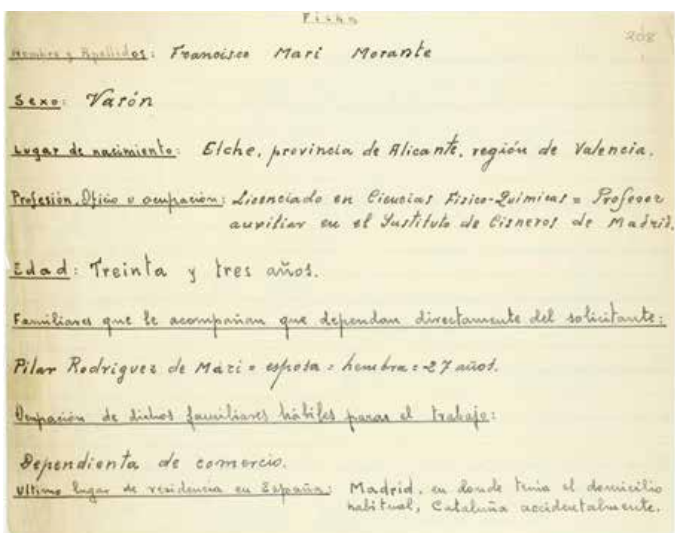 Ficha
208
Nombre y Apellidos: Francisco Mari Morante
Sexo: Varón
Lugar de nacimiento: Elche, provincia de Alicante, región de Valencia.
Profesión, Oficio u ocupación: Licenciado en Ciencias Físico-Químicas = Profesor
auxiliar en el Instituto de Cisneros de Madrid.
Edad: Treinta y tres años.
Familiares que le acompañan que dependan directamente del solicitante:
Pilar Rodriguez de Mari = esposa = hembra = 27 años.
Ocupación de dichos familiares hábiles paras el trabajo:
Dependienta de comercio.
Ultimo lugar de residencia en España: Madrid, en donde tenia el domicilio
habitual, Cataluña accidentalmente.